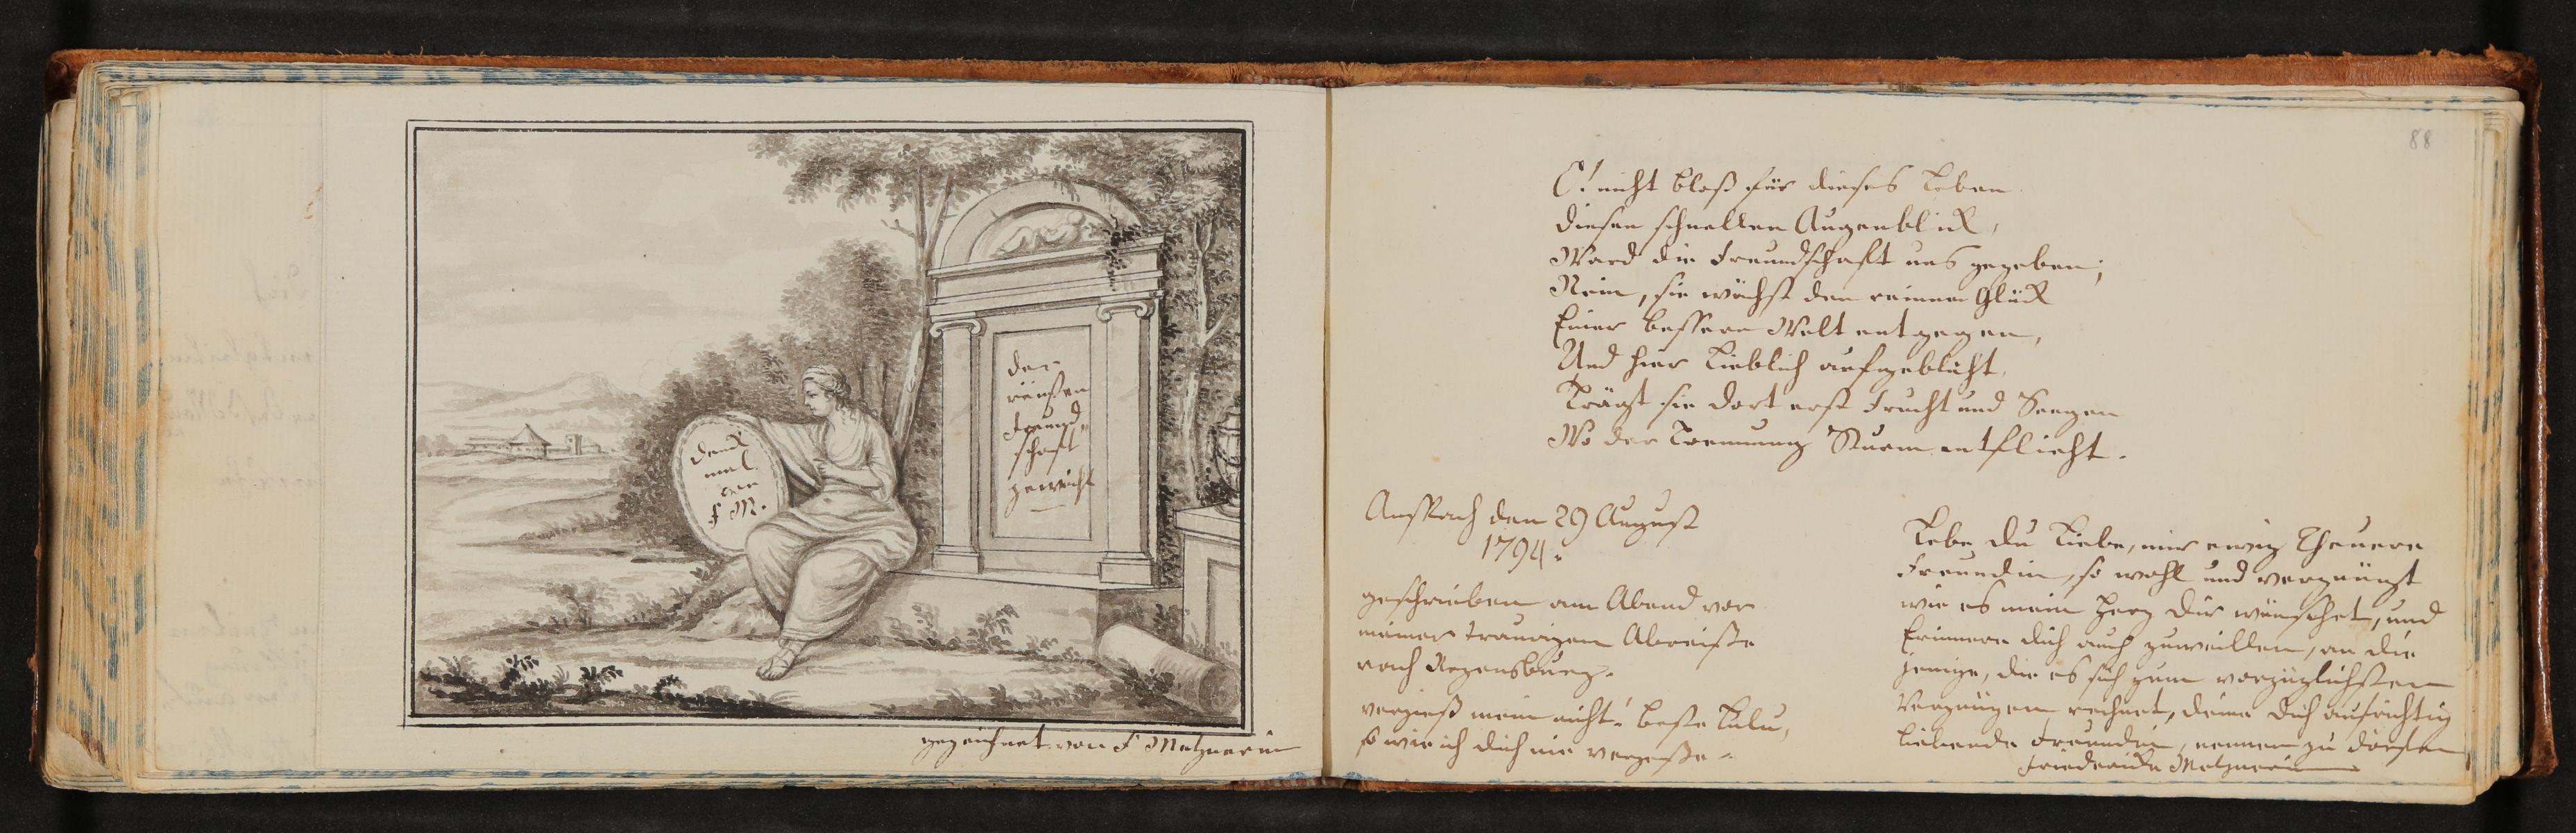 Denk
mal
von
F M.
der
reinsten
Freund„
schaft
geweiht
gezeichnet von F Metznerin
88
O! nicht bloß für dieses Leben
diesen schnellen Augenblick,
Ward die Freundschaft uns gegeben;
Nein, sie wächst den reinen Glück
Einer bessern Welt entgegen,
Und hier Lieblich aufgeblüht,
Trägt sie dort erst Frucht und Seegen
Wo der Trennung Sturm entflieht.
Anspach den 29 August
1794.
geschrieben am Abend vor
meiner traurigen Abreiße
nach Regensburg.
vergieß mein nicht! beste Lulu,
so wie ich dich nie vergeße.
Lebe du Liebe, mir ewig Theuere
Freundin, so wohl und vergnügt
wie es mein Herz dir wünschet, und
Erinnere dich auch zuweillen, an die
jenige, die es sich zum vorzüglichsten
Vergnügen rechnet, deine dich aufrichtig
liebende Freundin, nennen zu dörfen
Friedericka Metznerin